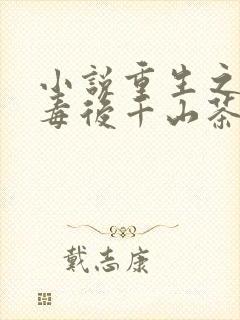 小说重生之
毒后千山茶
戴志康